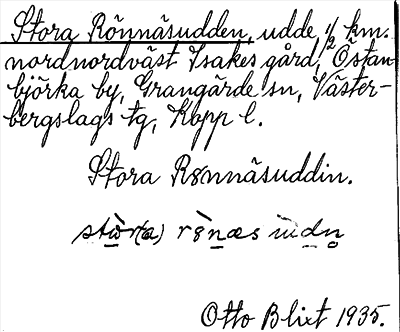 Stora Rönnäsudden, udde, ½ km.
nordnordväst Isakes gård, Östan
björka by, Grangärde sn, Väster-
bergslags tg, Kopp l.
Stora Rönnäsuddin.
Otto Blixt 1935.